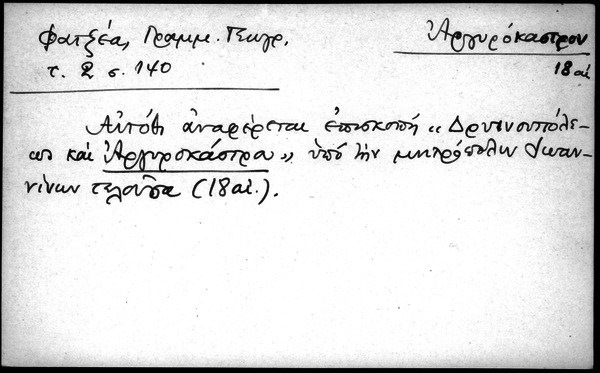 Φατζέα, Γραμμ. Γεωγρ.
τ. 2 σ. 140
Ἀργυρόκαστρον
18 αἰ
Αὐτόθι ἀναφέρεται ἐπισκοπή "Δρυϊνουπόλε-
ως καὶ Ἀργυροκάστρου" ὑπό τὴν μητρόπολιν Ἰωαν-
νίνων τελοῦσα (18 αἰ.).